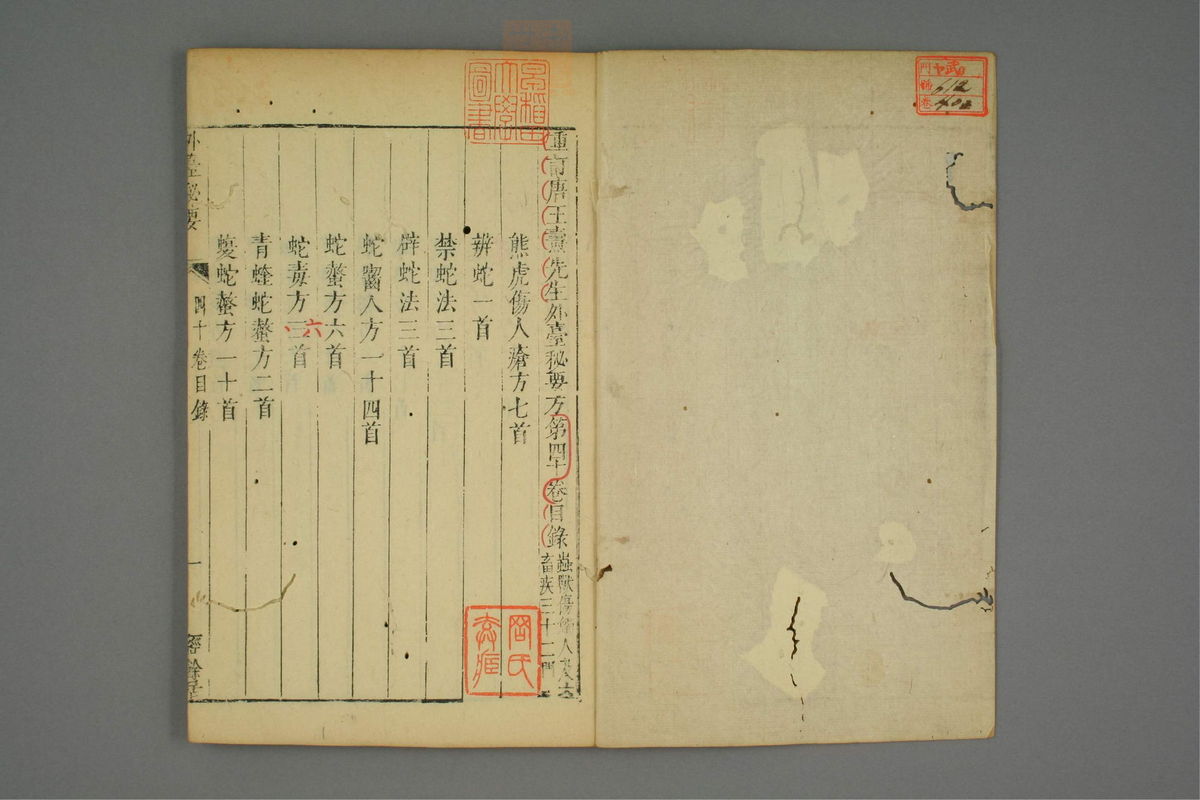 重訂唐王燾先生外臺秘要方第四十卷目錄
蟲獸傷觸人及六
畜疾三十二門
熊虎傷人瘡方七首
辨蛇一首
禁蛇法三首
辟蛇法三首
蛇齧人方一十四首
蛇螫方六首
蛇毒方三首
六
青蝰蛇螫方二首
蝮蛇螫方一十首
外臺秘要
四十卷目錄
一
經餘居
早稻田大學圖書
門
號 112
卷 402